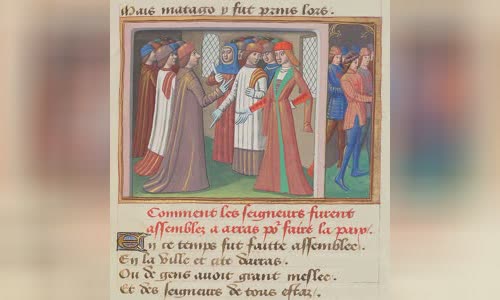 Mais matago y fut prins lors.
Comment les seigneurs furent
assemblez a arras po᷑ faire la paix.
En ce temps fut faitte assemblee.
En la ville et cite darras.
Ou de gens avoit grant meslee.
Et des seigneurs de tous estaz.